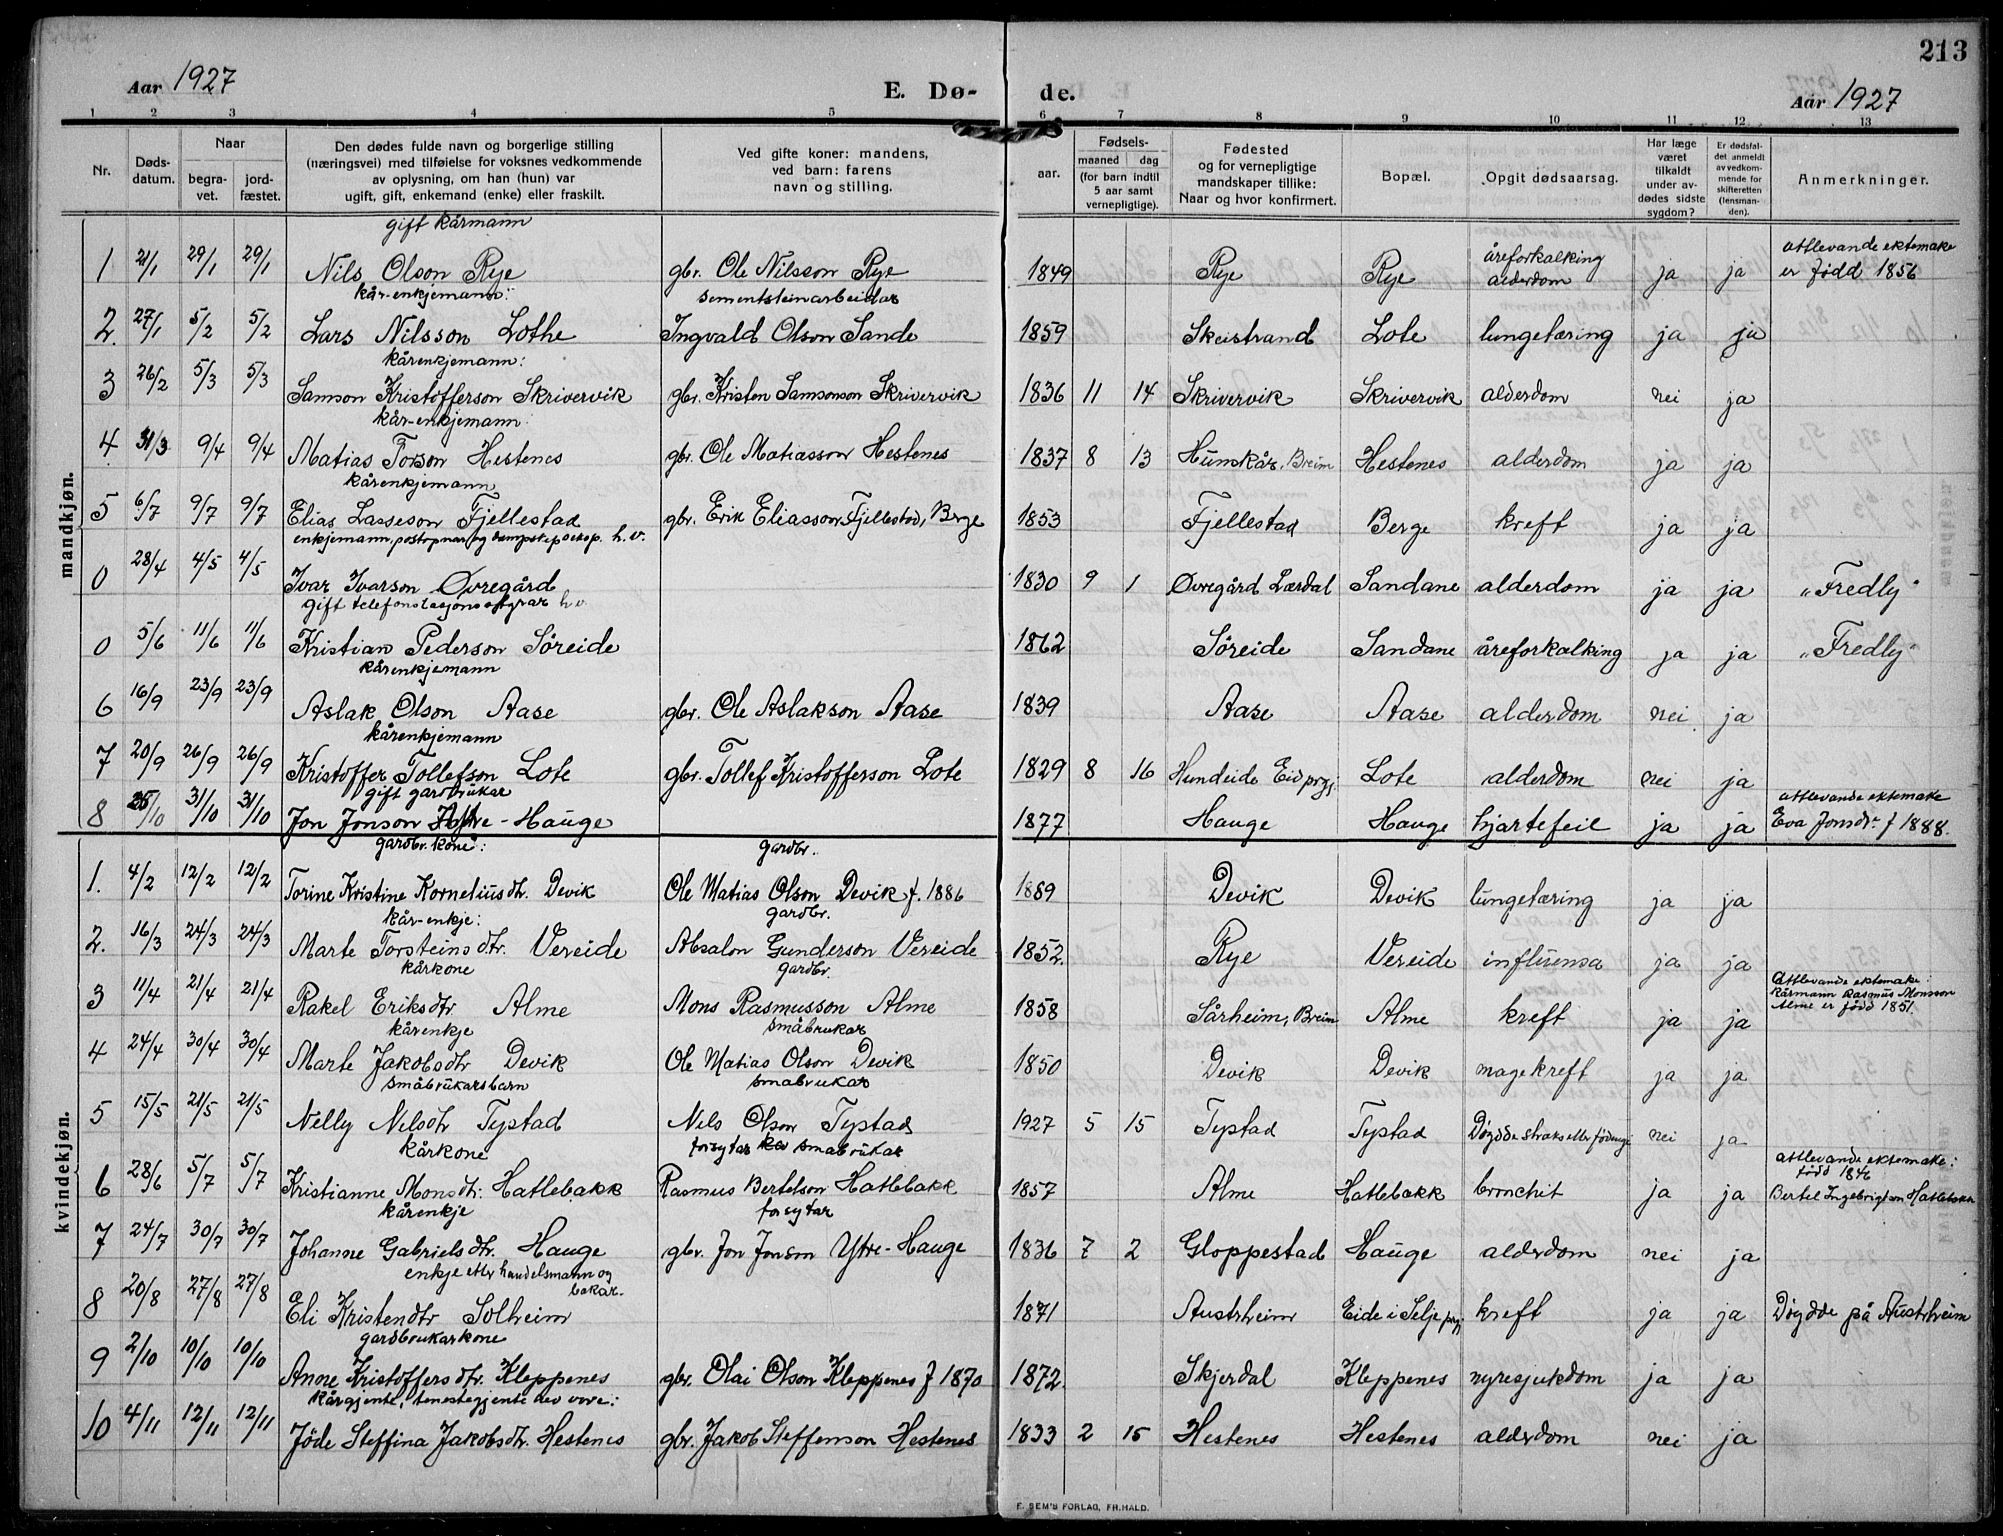 213
Aar 1927
E. Dø-
de.
Aar 1927
1 2 3 4 5 6 7 8 9 10 11 12 13
Nr.
Døds-
datum.
Naar
begra-
vet.
jord-
fæstet.
Den dødes fulde navn og borgerlige stilling
(næringsvei) med tilføielse for voksnes vedkommende
av oplysning, om han (hun) var
ugift, gift, enkemand (enke) eller fraskilt.
Ved gifte koner: mandens,
ved barn: farens
navn og stilling.
aar.
Fødsels-
maaned dag
(for barn indtil
5 aar samt
vernepligtige).
Fødested
og for vernepligtige
mandskaper tillike:
Naar og hvor konfirmert.
Bopæl.
Opgit dødsaarsag.
Har læge
været
tilkaldt
under av-
dødes sidste
sygdom?
Er dødsfal-
det anmeldt
av vedkom-
mende for
skifteretten
(lensman-
den).
Anmerkninger.
mandkjøn.
gift kårmann
1 21/1 29/1 29/1 Nils Olson Rye gbr. Ole Nilsson Rye 1849 Rye Rye åreforkalking alderdom ja ja attlevande ektemake er fødd 1856
kår-enkjemann: sementsteinarbeidar
2. 27/1 5/2 5/2 Lars Nilsson Lothe Ingvald Olson Sande 1859 Skeistrand Lote lungetæring ja ja
kårenkjemann:
3 26/2 5/3 5/3 Samson Kristofferson Skrivervik gbr. Kristen Samsonson Skrivervik 1836 11 14 Skrivervik Skrivervik alderdom nei ja
kår-enkjemann
4 31/3 9/4 9/4 Matias Torson Hestenes gbr. Ole Matiasson Hestenes 1837 8 13 Humskår, Breim Hestenes alderdom ja ja
kårenkjemann
5 6/7 9/7 9/7 Elias Lasseson Fjellestad gbr. Erik Eliasson Fjellestad, Berge 1853 Fjellestad Berge kreft ja ja
enkjemann, postopnar og dampskipseksp. h. v.
0 28/4 4/5 4/5 Ivar Ivarson Øvregård 1830 9 1 Øvregård Lærdal Sandane alderdom ja ja "Fredly"
gift telefonstasjonsstyrar h v.
0 5/6 11/6 11/6 Kristian Pederson Søreide 1862 Søreide Sandane åreforkalking ja ja "Fredly"
kårenkjemann
6 16/9 23/9 23/9 Aslak Olson Aase gbr. Ole Aslakson Aase 1839 Aase Aase alderdom nei ja
kårenkjemann
7 20/9 26/9 26/9 Kristoffer Tollefson Lote gbr. Tollef Kristofferson Lote 1829 8 16 Hundeide Eid prgj. Lote alderdom nei ja
gift gardbrukar
8 25/10 31/10 31/10 Jon Jonson Ytre-Hauge 1877 Hauge Hauge hjartefeil ja ja attlevande ektemake Eva Jonsdtr. f 1888.
kvindekjøn.
gardbr. kone: gardbr.
1. 4/2 12/2 12/2 Torine Kristine Korneliusdtr. Devik Ole Matias Olson Devik f. 1886 1889 Devik Devik lungetæring ja ja
kår-enkje: gardbr.
2. 16/3 24/3 24/3 Marte Torsteinsdtr. Vereide Absalon Gunderson Vereide 1852. Rye Vereide influensa ja ja
kårkone gardbr.
3 11/4 21/4 21/4 Rakel Eriksdtr Alme Mons Rasmusson Alme 1858 Sårheim, Breim Alme kreft ja ja attlevande ektemake: kårmann Rasmus Monsson Alme er fødd 1851.
kårenkje småbrukar
4 24/4 30/4 30/4 Marte Jakobsdtr Devik Ole Matias Olson Devik 1850 Devik Devik magekreft ja ja
småbrukarsbarn småbrukar
5 15/5 21/5 21/5 Nelly Nilsdtr Tystad Nils Olson Tystad 1927 5 15 Tystad Tystad Døydde straks etter fødinga nei ja
kårkone forsytar småbrukar
6 28/6 5/7 5/7 Kristianne Monsdtr. Hatlebakk Rasmus Bertelson Hatlebakk 1857 Alme Hatlebakk bronchit ja ja attlevande ektemake: fødd 1846 Bertel Ingebrigtson Hatlebakk
kårenkje forsytar
7 24/7 30/7 30/7 Johanne Gabrielsdtr. Hauge gbr. Jon Jonson Ytre-Hauge 1836 7 2 Gloppestad Hauge alderdom nei ja
enkje etter handelsmann og bakar.
8 20/8 27/8 27/8 Eli Kristendtr Solheim 1871 Austrheim Eide i Selje prgj. kreft ja ja Døydde på Austrheim
gardbrukarkone
9 2/10 10/10 10/10 Anne Kristoffersdtr. Kleppenes gbr. Olai Olson Kleppenes f 1870 1872. Skjerdal Kleppenes nyresjukdom ja ja
kårgjente, tenestegjente hev vore:
10 4/11 12/11 12/11 Jøde Steffina Jakobsdtr. Hestenes gbr. Jakob Steffenson Hestenes 1833 2 15 Hestenes Hestenes alderdom nei ja
F. SEM'S FORLAG, FR.HALD.